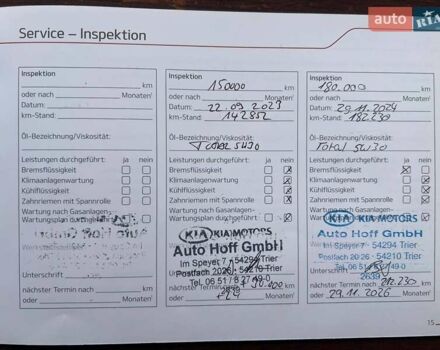 auto RIA
Service – Inspektion
Inspektion
km
oder nach Monaten
Datum:
km-Stand:
Öl-Bezeichnung/Viskosität:
Leistungen durchgeführt: ja nein
Bremsflüssigkeit
Klimaanlagenwartung
Kühlflüssigkeit
Zahnriemen mit Spannrolle
Wartung nach Gasanlagen-
Wartungsplan durchgeführt
Unterschrift
nächster Termin nach km
oder Monaten
Inspektion
150000 km
oder nach Monaten
Datum: 22.09.2023
km-Stand: 142852
Öl-Bezeichnung/Viskosität:
Total 5W30
Leistungen durchgeführt: ja nein
Bremsflüssigkeit
Klimaanlagenwartung
Kühlflüssigkeit
Zahnriemen mit Spannrolle
Wartung nach Gasanlagen-
Wartungsplan durchgeführt
KIA KIA MOTORS
Auto Hoff GmbH
Im Speyer 7 · 54294 Trier
Postfach 20 26 · 54210 Trier
nächster Termin km
oder Monaten
Inspektion
180.000 km
oder nach Monaten
Datum: 29.11.2024
km-Stand: 182230
Öl-Bezeichnung/Viskosität:
Total 5W30
Leistungen durchgeführt: ja nein
Bremsflüssigkeit
Klimaanlagenwartung
Kühlflüssigkeit
Zahnriemen mit Spannrolle
Wartung nach Gasanlagen-
Wartungsplan durchgeführt
KIA KIA MOTORS
Auto Hoff GmbH
Im Speyer 7 · 54294 Trier
Postfach 20 26 · 54210 Trier
nächster Termin nach 212.230 km
oder 29.11.2026 Monaten
15